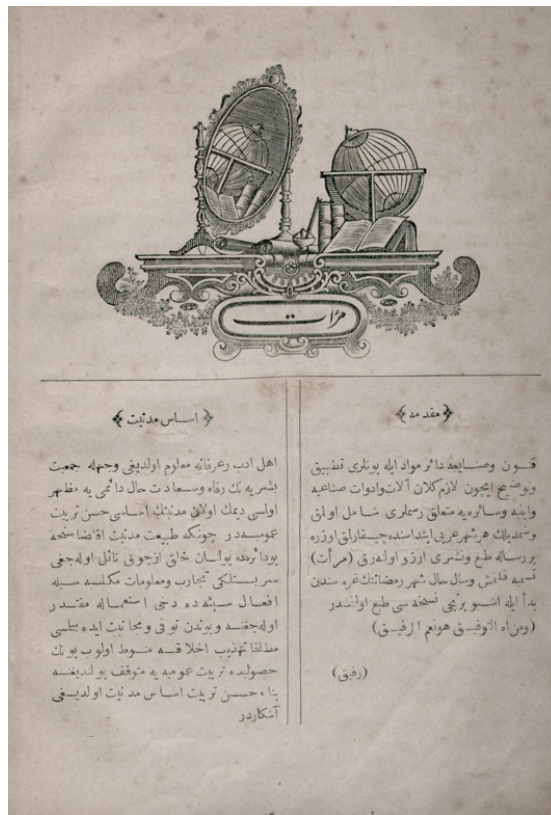 مرآت
﴿ مقدمه ﴾
فنون وصنايعه دائر مواد ايله بونلرى تطبيق
وتوضيح ايچون لازم كلان آلات وادوات صناعيه
وابنيه وسائره يه متعلق رسملرى شامل اولق
وسمديلك هر شهر عربى ابتداسنده چيقارلق اوزره
بر رساله طبع ونشرى آرزو اولنه رق (مرأت)
تسميه قلنمش وسال حال شهر رمضاننك غره سندن
بدأ ايله اشبو برنجى نسخه سى طبع اولنمشدر
(ومن الله التوفيق هو نعم الرفيق)
(رفيق)
﴿ اساس مدنيت ﴾
اهل ادب وعرفانه معلوم اولديغى وجهله جمعيت
بشريه نك رفاه وسعادت حال دائمى يه مظهر
اولسى ديمك اولان مدنيتك اساسى حسن تربيت
عموميه در چونكه طبيعت مدنيت اقتضاسنجه
بودائره ده بولنان خلق آرزوى نائل اوله جغى
سربستلكى تجارب ومعلومات مكتسبه سيله
افعال سيئه ده دخى استعماله مقتدر
اوله جغنه وبوندن توقى ومجانبت ايده بيلسى
مطلقا تهذيب اخلاقه منوط اولوب بونك
حصولىده تربيت عموميه يه متوقف بولنديغنه
بناء حسن تربيت اساس مدنيت اولديغى
آشكاردر